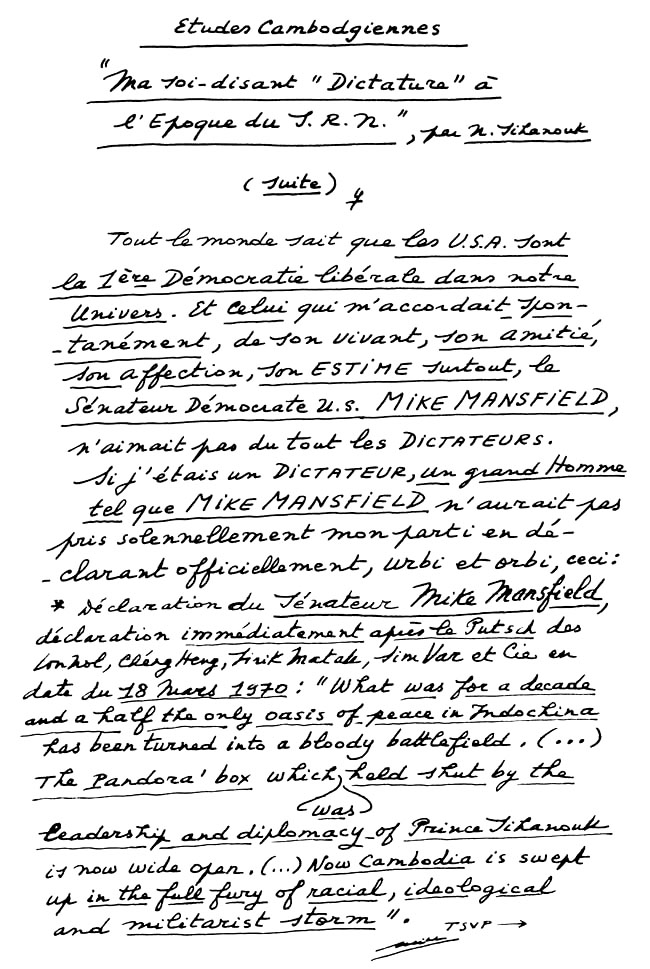 Etudes Cambodgiennes
"Ma soi-disant "Dictature" à
l'Epoque du S.R.N.", par N. Sihanouk
(suite)
Tout le monde sait que les U.S.A. sont
la 1ère Démocratie libérale dans notre
Univers. Et celui qui m'accordait spon-
-tanément, de son vivant, son amitié,
son affection, son ESTIME surtout, le
Sénateur Démocrate U.S. MIKE MANSFIELD,
n'aimait pas du tout les DICTATEURS.
Si j'étais un DICTATEUR, un grand Homme
tel que MIKE MANSFIELD n'aurait pas
pris solennellement mon parti en dé-
-clarant officiellement, urbi et orbi, ceci :
* Déclaration du Sénateur Mike Mansfield,
déclaration immédiatement après le Putsch des
Lon Nol, Chéng Heng, Sirik Matak, Sim Var et Cie en
date du 18 Mars 1970 : "What was for a decade
and a half the only oasis of peace in Indochina
has been turned into a bloody battlefield. (...)
The Pandora' box which held shut by the
was
leadership and diplomacy of Prince Sihanouk
is now wide open. (...) Now Cambodia is swept
up in the full fury of racial, ideological
and militarist storm".
TSVP →